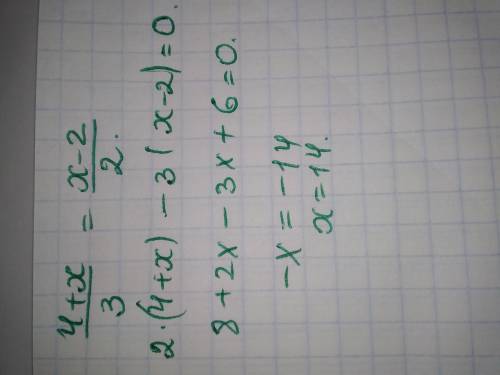 (4+x)/3 = (x-2)/2.
2·(4+x) - 3(x-2)=0.
8+2x-3x+6=0.
-x=-14
x=14.